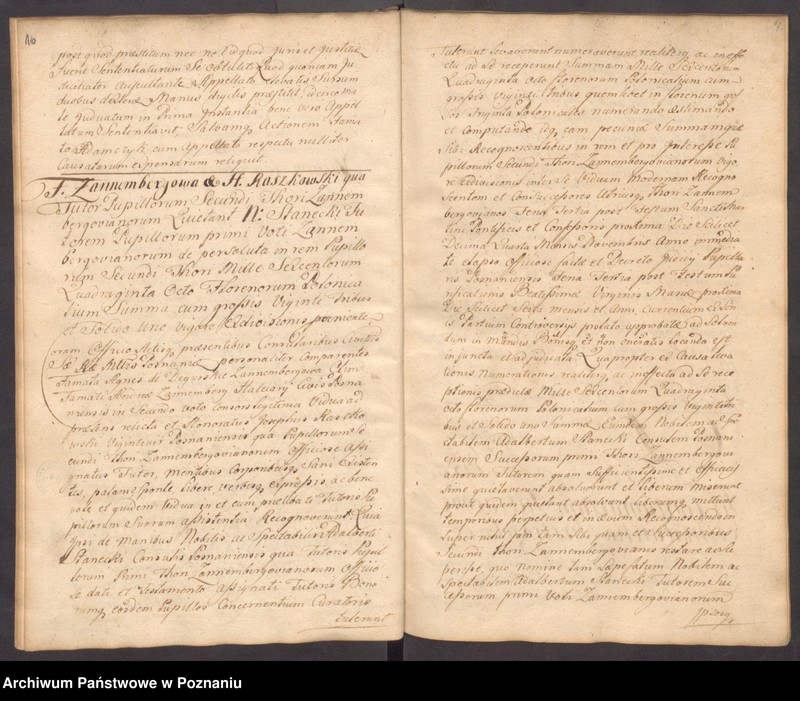 16
post quod præstitum nec ne id quod Juris et Justitiæ
fuerit Sententiaturum Se obtulit Quod quoniam Ju
Auscultante Appellato elevatis Sursum
duobus dextræ Manus digitis præstitit, ideo
in Prima Instantia bene vero Appel
latum Sententiavit, Salvamq Actionem
cum Appellato respectu
expensarum reliquit.
F. Zannembergowa & H. Raszkowski qua
Tutor Pupillorum Secundi Thori Zannem
bergovianorum Quietant N: Stanecki Tu
torem Pupillorum primi Voti Zannem
bergovianorum de persoluta in rem Pupillo
rum Secundi Thori Mille Sexcentorum
Quadraginta Octo Florenorum Polonica
lium Summa cum grossis Viginti Tribus
et Solido Uno vigore
Coram Officio Actisq præsentibus Consularibus Civitatis
personaliter Comparentes
Famata Agnes de Zannembergowa
Famati Andreæ Zannemberg Civis Posna
niensis in Secundo Voto Consors legitima Vidua ad
præsens relicta et Honoratus Josephus Raszko
wski Posnaniensis qua Pupillorum Se
cundi Thori Zannembergovianorum Officiose Assi
gnatus Tutor, mentibus Corporibusq Sani Existen
tes, palam sponte libere verbisq expressis ac bene
et quidem Vidua in et cum Tutoris Pu
pillorum Suorum assistentia Recognoverunt Quia
Ipsi de Manibus Nobilis ac Spectabilis Adalberti
Stanecki Consulis Posnaniensis qua Tutoris Pupil
lorum Primi Thori Zannembergovianorum Officio
se dati et Testamento Assignati Tutoris Bono
rumq eorundem Pupillos Concernentium Curatoris
tulerunt
tulerunt levaverunt numeraverunt realiterq ac in effe
ctu ad Se receperunt Summam Mille Sexcentorum
Quadraginta Octo florenorum Polonicalium cum
grossis Viginti Tribus quemlibet in florenum gros
sos Triginta Polonicales numerando æstimando
et computando, eamq pecuniæ Summam
Sibi Recognoscentibus in rem et pro Interesse Pu
pillorum Secundi Thori Zannembergovianorum Vigo
re inter Se Viduam Modernam Recogno
scentem et Consuccessores Utriusq Thori Zannem
bergovianos Feria Tertia post Festum Sancti
Pontificis et Confessoris proxima Die Scilicet
Decima Quarta Mensis Novembris Anno immedia
te elapso Officiose factæ et Decreto Judicy
Posnaniensis Feria Tertia post Festum Pu
rificationis Beatissimæ Virginis Mariæ proxima
Die Scilicet Sexta mensis et Anni Currentium
Partium Controversys prolato approbatæ ad Solven
dum in
injuncta et adjudicata Quapropter ex Causa leva
tionis Numerationis realisq ac in effectu ad Se rece
ptionis prædictæ Mille Sexcentorum Quadraginta
Octo florenorum Polonicalium cum grossis Viginti tri
bus et Solido uno Summæ Eundem Nobilem ac Spe
ctabilem Adalbertum Stanecki Consulem Posnani
ensem Successorum primi Thori Zannembergovi
anorum Tutorem quam Sufficientissime et Efficacis
sime quietaverunt absolverunt et liberum miserunt
prout quidem quietant absolvunt liberumq mittunt
temporibus perpetuis et in ævum Recognoscendo in
super nihil jam tam Sibi quam et Successoribus
Secundi Thori Zannembergovianis restare ac Su
peresse, quo nomine tam Sæpefatum Nobilem ac
Spectabilem Adalbertum Stanecki Tutorem Suc
cessorum primi Voti Zannembergovianorum
Archiwum Państwowe w Poznaniu